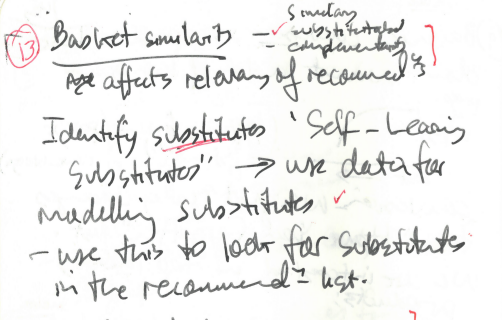 13 Basket similarity - similarity
✓ substitutes
- complementarity
affects relevancy of recommend⁠ns
Identify substitutes "Self-Learning
Substitutes" → use data for
modelling substitutes ✓
- use this to look for substitutes
in the recommendn list.